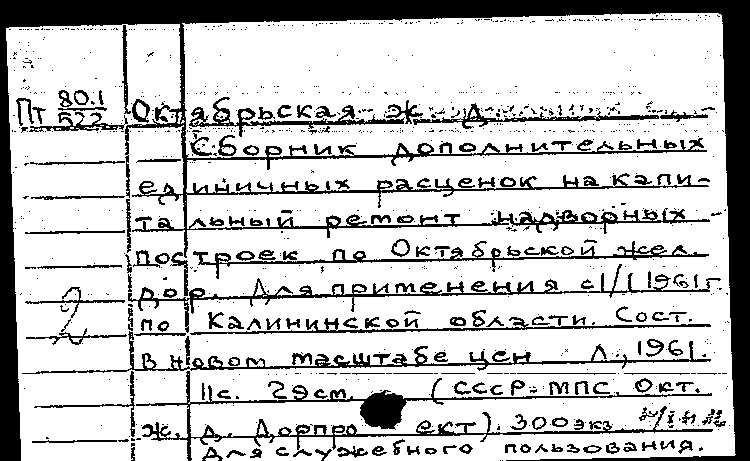 Пт 80.1/522 Октябрьская ж. д.
Сборник дополнительных
единичных расценок на капи-
тальный ремонт надворных
построек по Октябрьской жел.
дор. Для применения с 1/I 1961 г.
2 по Калининской области. Сост.
в новом масштабе цен Л., 1961.
11с. 29см. (СССР. МПС. Окт.
ж. д. Дорпроект). 300 экз.
Для служебного пользования.